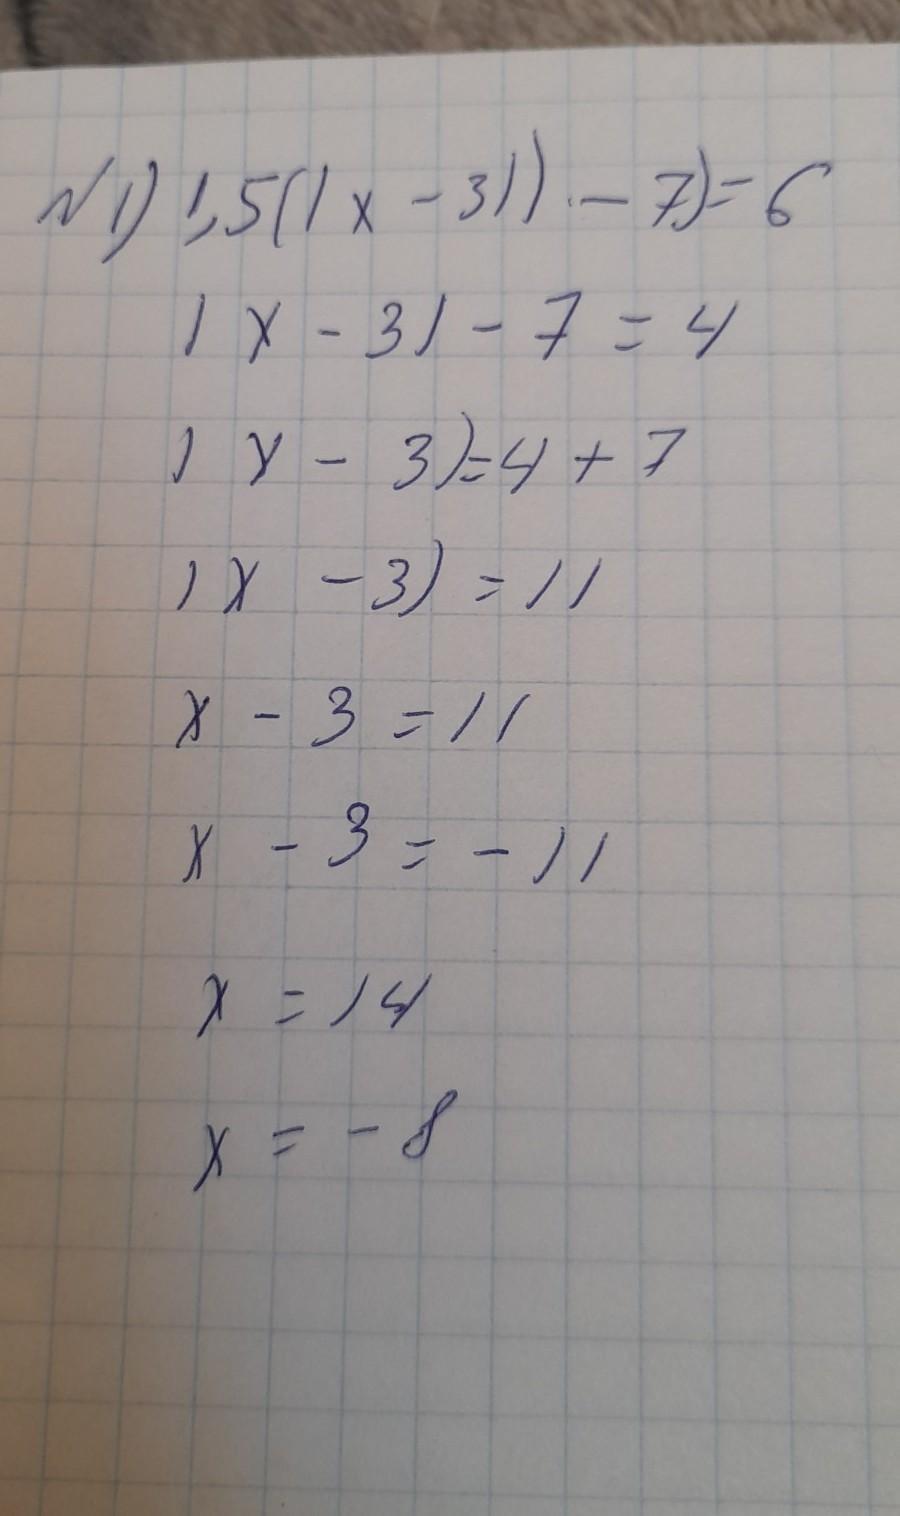 №1) 1,5(|x - 3|) - 7) = 6
|x - 3| - 7 = 4
|x - 3| = 4 + 7
|x - 3| = 11
x - 3 = 11
x - 3 = - 11
x = 14
x = - 8